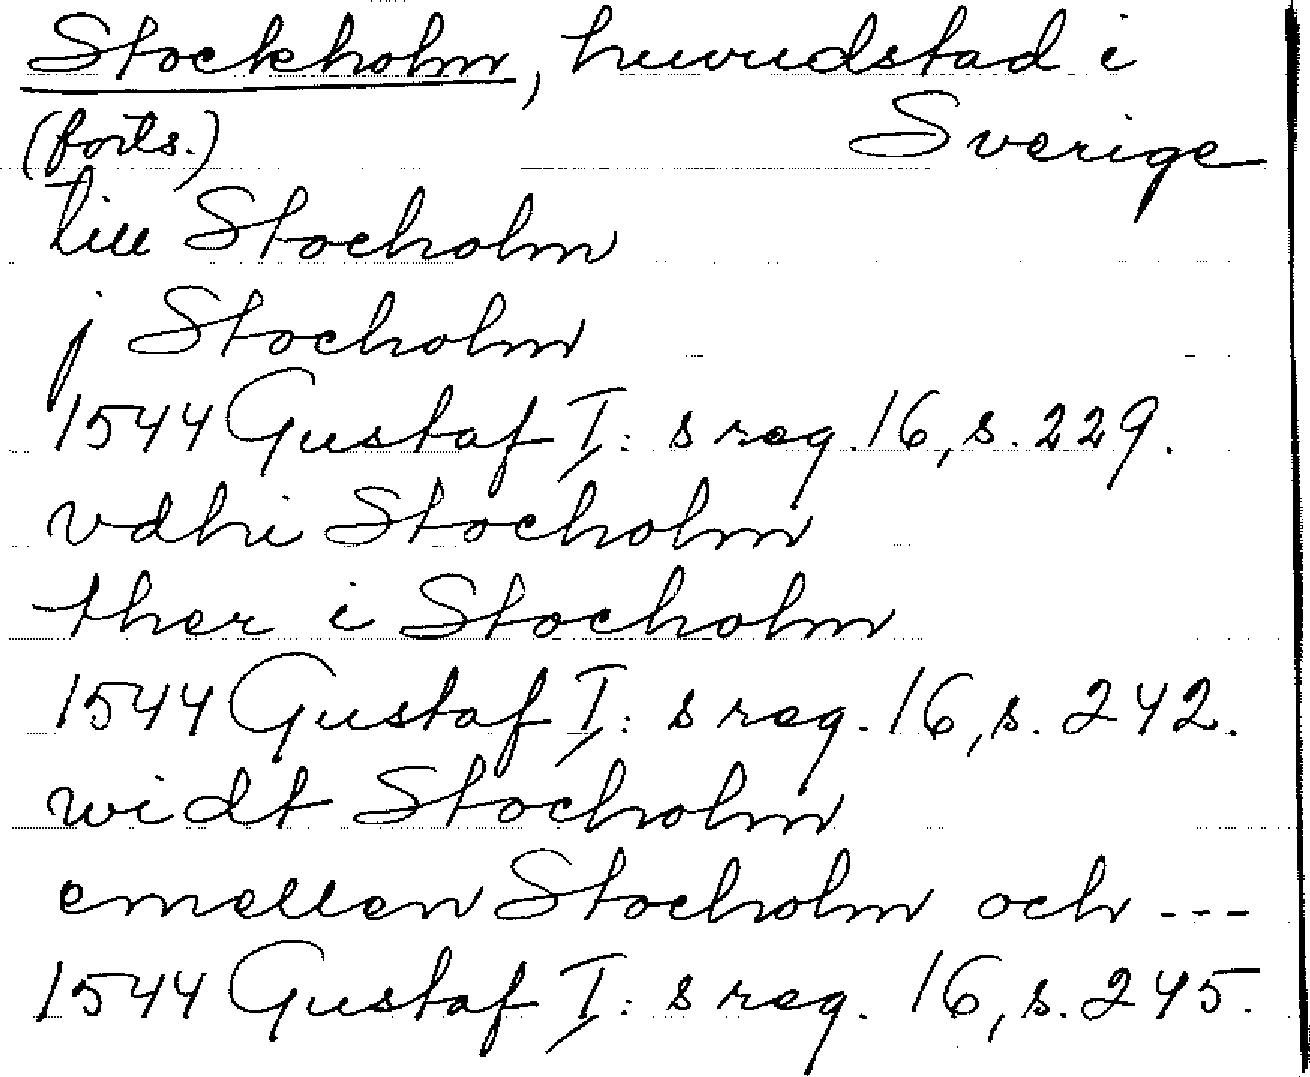 Stockholm, huvudstad i
(forts.) Sverige
till Stocholm
j Stocholm
1544 Gustaf I: s reg. 16, s. 229.
vdhi Stocholm
ther i Stocholm
1544 Gustaf I: s reg. 16, s. 242.
widt Stocholm
emellen Stocholm och ---
1544 Gustaf I: s reg. 16, s. 245.